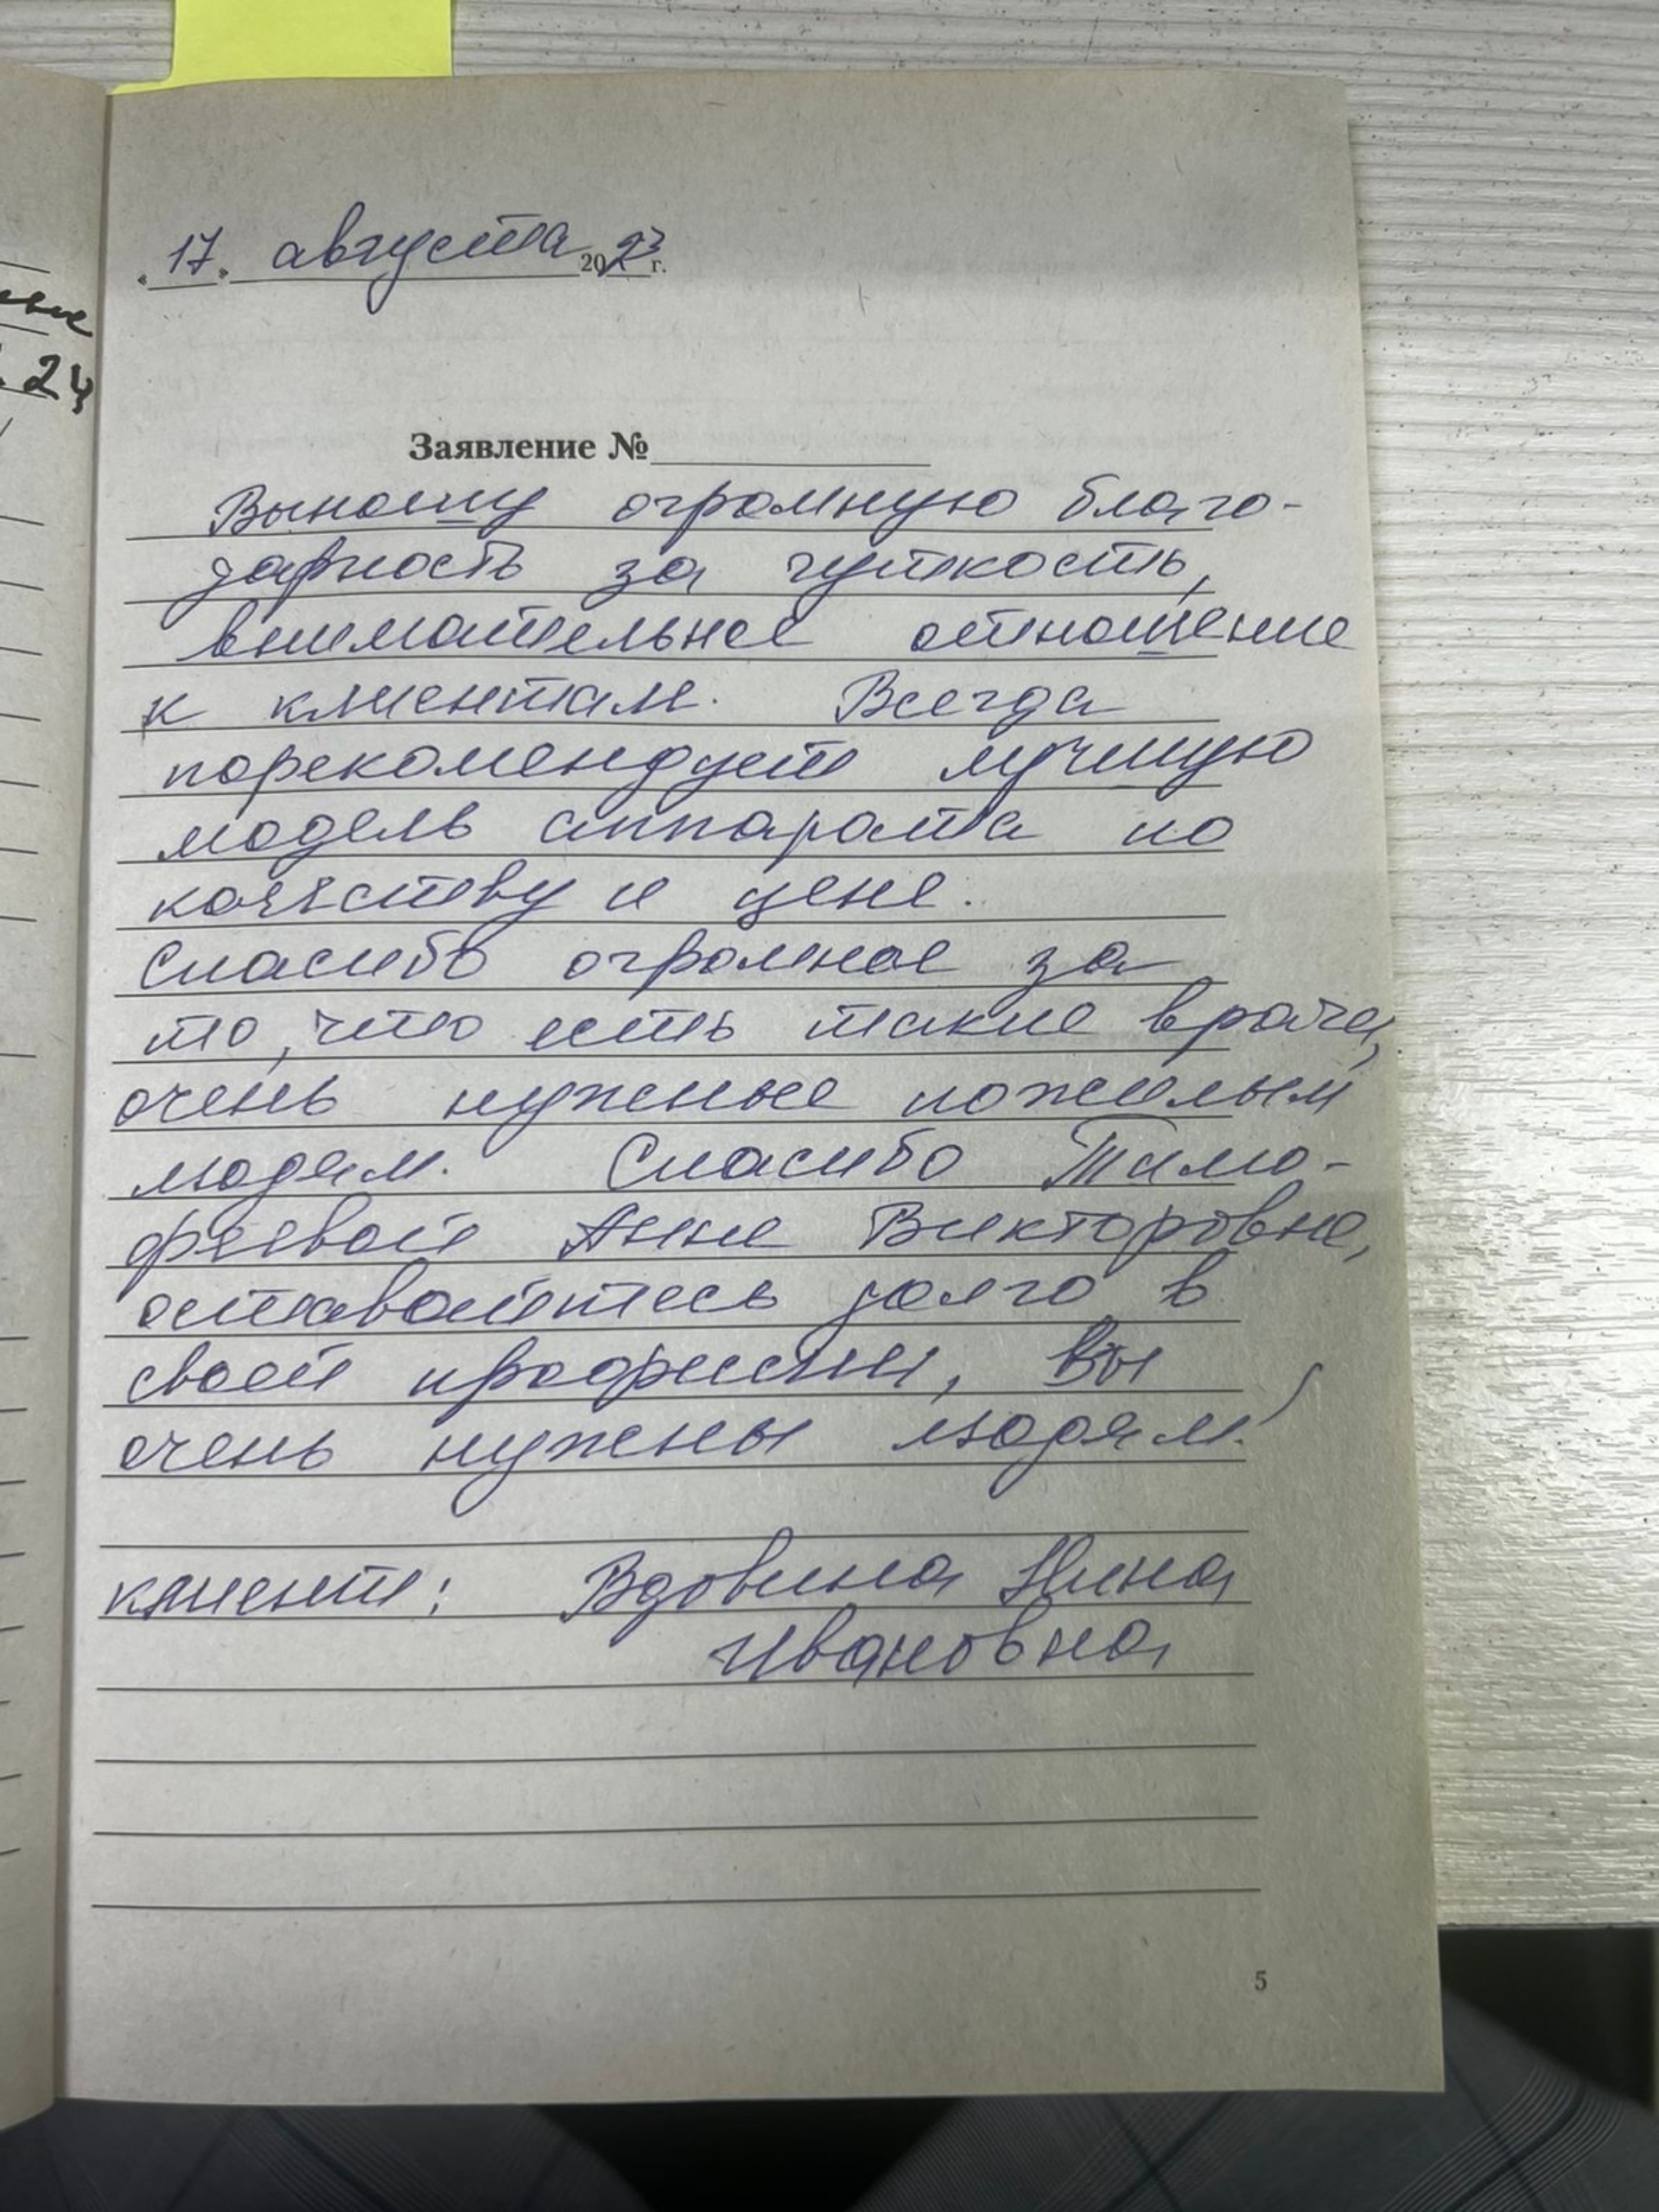 "17" августа 2023 г.
24
Заявление №
Выношу огромную благо-
дарность за чуткость,
внимательное отношение
к клиентам. Всегда
порекомендует лучшую
модель аппарата по
качеству и цене.
Спасибо огромное за
то, что есть такие врачи,
очень нужные пожилым
людям. Спасибо Тимо-
феевой Анне Викторовне,
оставайтесь долго в
своей профессии, вы
очень нужны людям.
клиент: Вдовина Нина
Ивановна
5